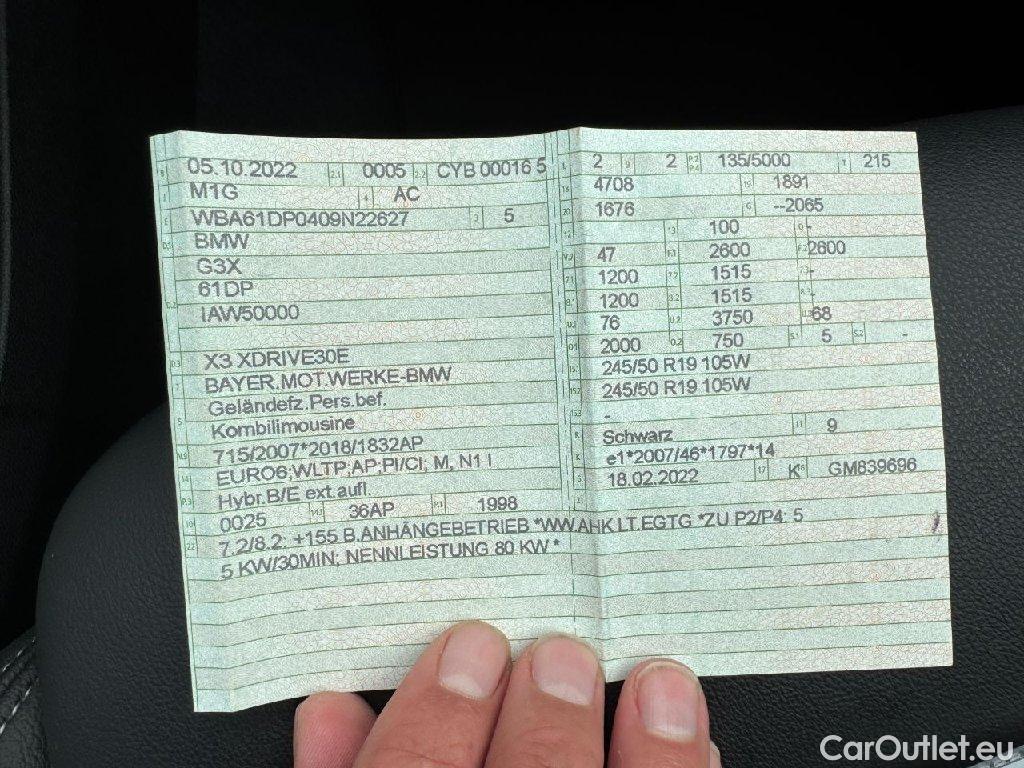 05.10.2022 2.1 0005 2.2 CYB 00016 5
M1G 4 AC
WBA61DP0409N22627 3 5
BMW
G3X
61DP
IAW50000
X3 XDRIVE30E
BAYER.MOT.WERKE-BMW
Geländefz.Pers.bef.
Kombilimousine
715/2007*2018/1832AP
EURO6;WLTP;AP;PI/CI; M, N1 I
Hybr.B/E ext.aufl.
0025 36AP P.1 1998
7.2/8.2: +155 B.ANHÄNGEBETRIEB *WW.AHK LT.EGTG *ZU P2/P4: 5
5 KW/30MIN; NENNLEISTUNG 80 KW *
2 9 2 P.2 P.4 135/5000 T 215
4708 19 1891
1676 G --2065
100 -
47 2600 2600
1200 7.2 1515 -
1200 8.2 1515 -
76 U.2 3750 68
2000 O.2 750 S.1 5 S.2 -
245/50 R19 105W
245/50 R19 105W
-
Schwarz 11 9
e1*2007/46*1797*14
18.02.2022 17 K 16 GM839696
CarOutlet.eu